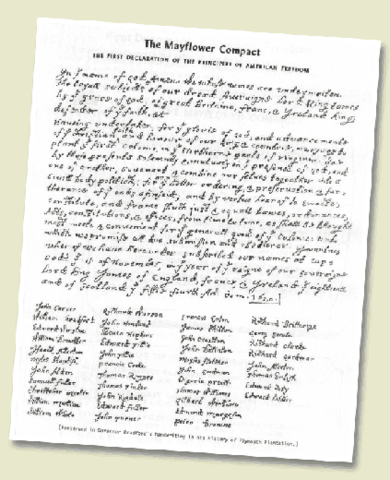 The Mayflower Compact
THE FIRST DECLARATION OF THE PRINCIPLES OF AMERICAN FREEDOM
In name of god, Amen whose names are underwriten
the loyall subjects of our dread soveraigne lord King James
by grace of god, of great Britaine, franc, & Ireland king,
defender of faith, &c
Haveing undertaken, for glorie of god, and advancemente
of Christian faith and honour of our king & countrie, a voyage to
plant first colonie in Northerne parts of Virginia. doe
by these presents solemnly & mutualy in presence of god, and
one of another, covenant, & combine our selves togeather into a
civill body politick; for better ordering, & preservation & fur-
therance of ends aforesaid; and by vertue hearof to enacte,
constitute, and frame just & equall lawes, ordinances,
Acts, constitutions, & offices, from time to time, as shall be thought
most & convenient for generall good of colonie: unto
which we promise all due submission and obedience. In witnes
wherof we have hereunder subscribed our names at cap
codd 11 of November, in year of raigne of our soveraigne
lord king James of England, france, & Ireland eighteenth
and of Scotland fiftie fourth. An: dom. 1620.
John Carver
William Bradford
Edward Winslow
William Brewster
Isaack Allerton
Myles Standish
John Alden
Samuel Fuller
Christopher Martin
William Mullins
William White
Richard Warren
John Howland
Steven Hopkins
Edward Tilly
John Tilly
Francis Cooke
Thomas Rogers
Thomas Tinker
John Rigdale
Edward Fuller
John Turner
Francis Eaton
James Chilton
John Crackston
John Billington
Moses Fletcher
John Goodman
Degory Priest
Thomas Williams
Gilbert Winslow
Edmond Margeson
Peter Browne
Richard Britterige
George Soule
Richard Clarke
Richard Gardiner
John Allerton
Thomas English
Edward Doty
Edward Leister
[Preserved in Governor Bradford's handwriting in his History of Plymouth Plantation.]